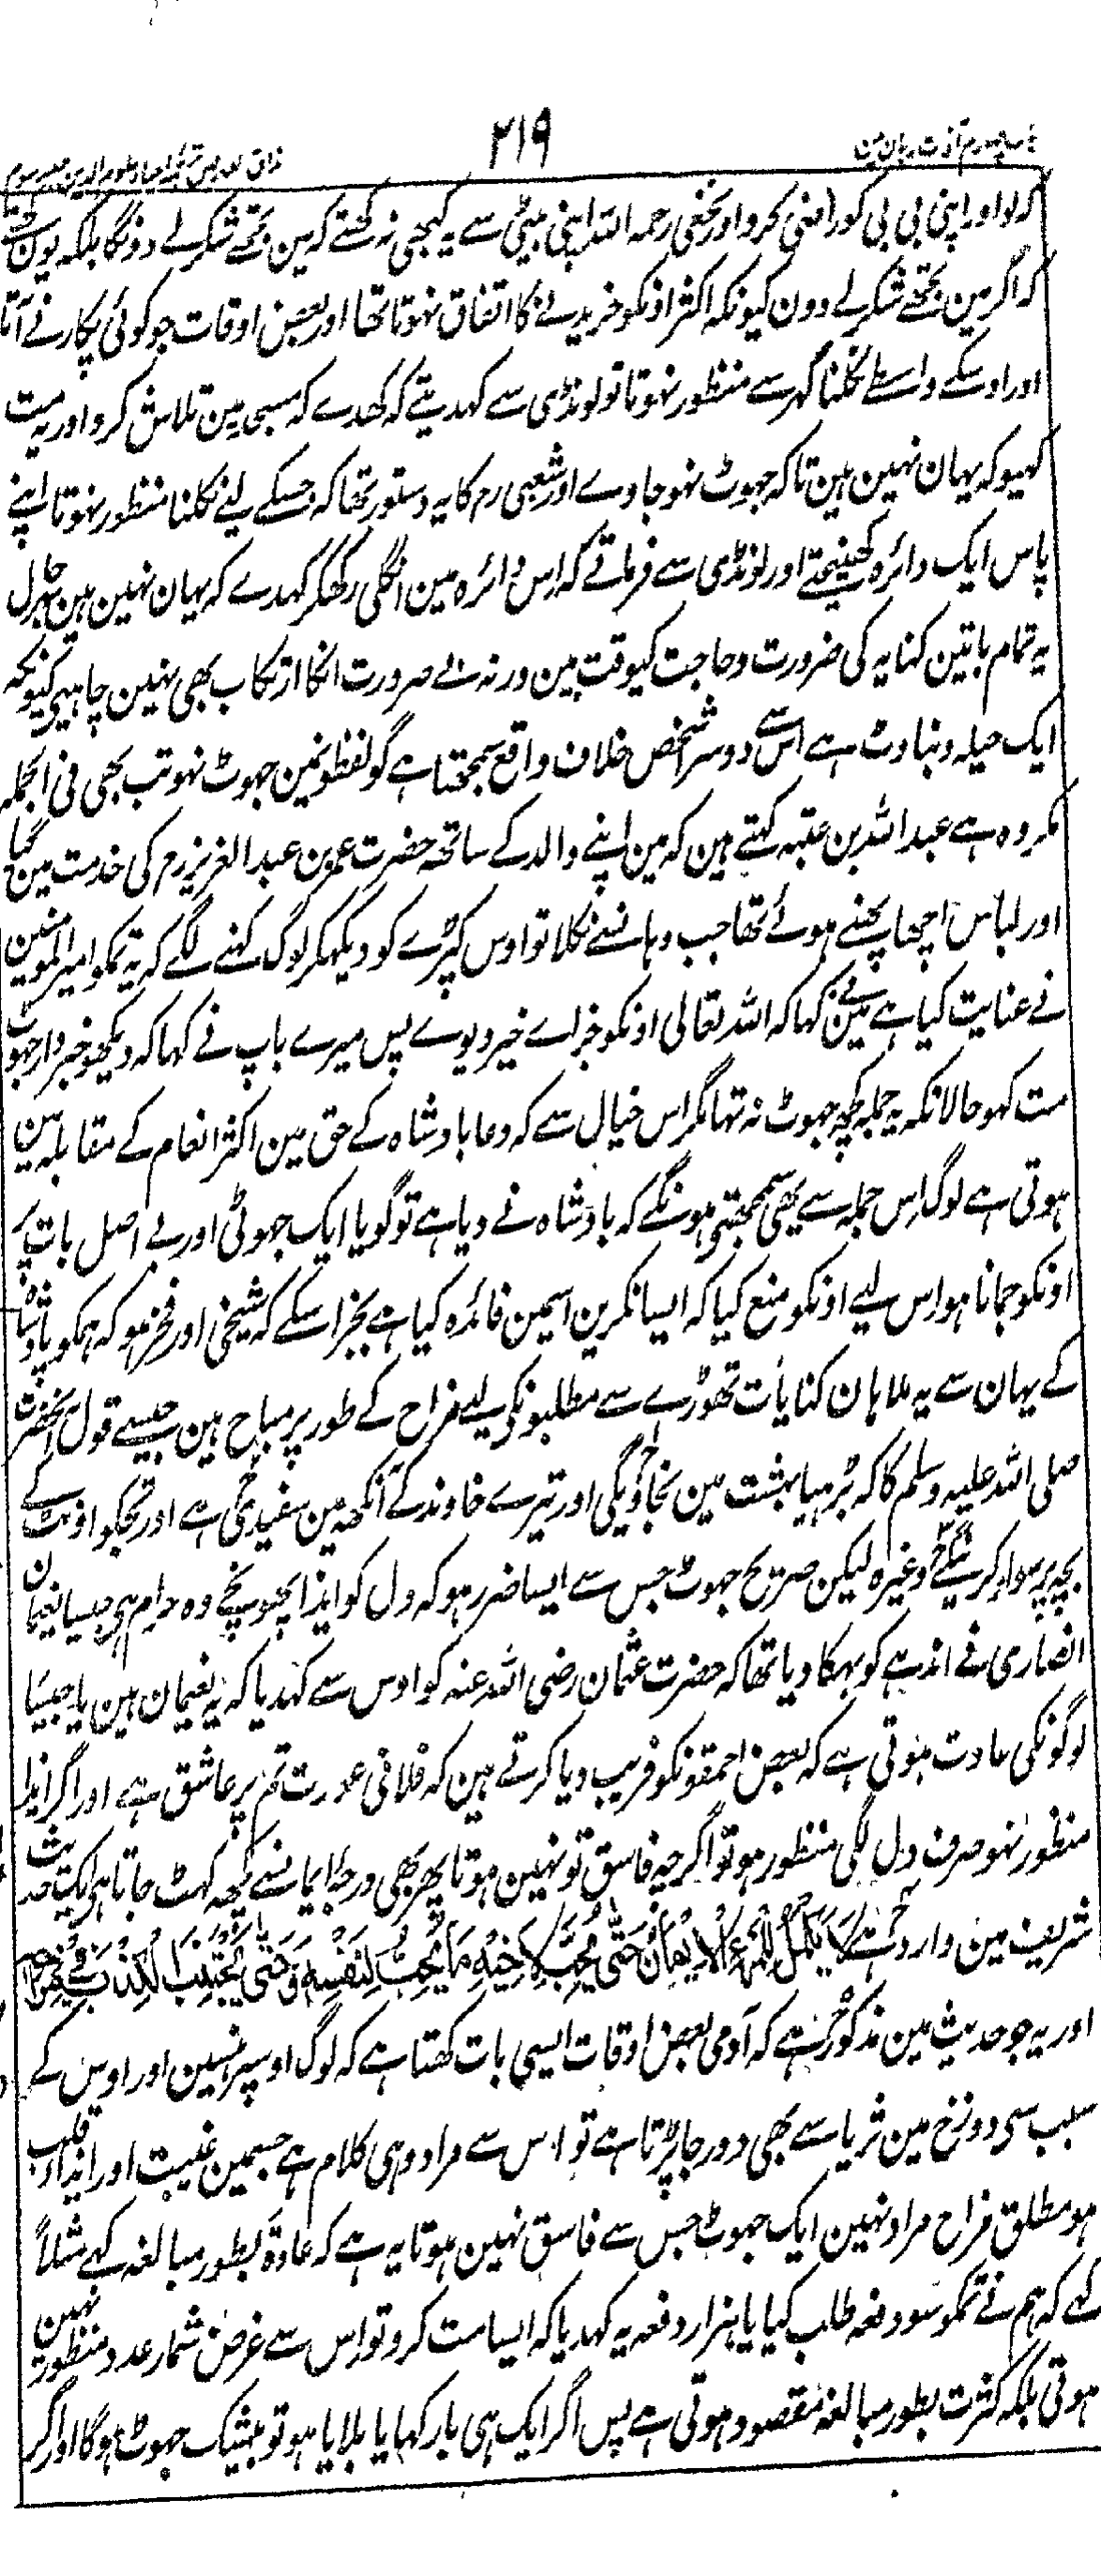 ۲۱۹
کر لو اور اپنی بی بی کو راضی کرو اور نخعی رحمہ اللہ اپنی بیٹی سے یہ کبھی نہ کہتے کہ مین تجھے شکر لے دونگا بلکہ یون کہتے
کہ اگر مین تجھے شکر لے دون کیونکہ اکثر اونکو خریدنے کا اتفاق نہوتا تھا اور بعض اوقات جو کوئی پکارنے آتا
اور اوسکے واسطے نکلنا گہر سے منظور نہوتا تو لونڈی سے کہدیتے کہ کہدے کہ مسجد مین تلاش کرو اور یہ مت
کہیو کہ یہان نہین ہین تاکہ جہوٹ نہو جاوے اور شعبی رم کا یہ دستور تھا کہ جسکے لیے نکلنا منظور نہوتا اپنے
پاس ایک دائرہ کھینچتے اور لونڈی سے فرماتے کہ اس دائرہ مین انگلی رکھکر کہدے کہ یہان نہین ہین حاصل
یہ تمام باتین کنایہ کی ضرورت و حاجت کیوقت ہین ورنہ بے ضرورت انکا ارتکاب بھی نہین چاہیی کیونکہ
ایک حیلہ و بناوٹ ہے اس سے دوسرا شخص خلاف واقع سمجھتا ہے گو لفظونمین جہوٹ نہو تب بھی فی الجملہ
مکروہ ہے عبد اللہ بن عتبہ کہتے ہین کہ مین اپنے والد کے ساتھ حضرت عمر بن عبد العزیز رم کی خدمت مین گیا
اور لباس اچھا پہنے ہوئے تھا جب وہانسے نکلا تو اوس کپڑے کو دیکہکر لوگ کہنے لگے کہ یہ تمکو امیر المومنین
نے عنایت کیا ہے مینے کہا کہ اللہ تعالی اونکو جزاے خیر دیوے پس میرے باپ نے کہا کہ دیکھو خبردار جہوٹ
مت کہو حالانکہ یہ جملہ کچھ جہوٹ نہ تہا مگر اس خیال سے کہ دعا بادشاہ کے حق مین اکثر انعام کے مقابلہ مین
ہوتی ہے لوگ اس جملہ سے یھی سمجھتے ہونگے کہ بادشاہ نے دیا ہے تو گویا ایک جہوٹی اور بے اصل بات پر
اونکو جمانا ہوا اس لیے اونکو منع کیا کہ ایسا نکرین اسمین فائدہ کیا ہے بجز اسکے کہ شیخی اور فخر ہو کہ ہمکو بادشاہ
کے یہان سے یہ ملا ہان کنایات تھوڑے سے مطلبونکے لیے مزاح کے طور پر مباح ہین جیسے قول آنحضرت
صلی اللہ علیہ وسلم کا کہ بڑہیا بہشت مین نجاویگی اور تیرے خاوند کے آنکھ مین سفیدی ہے اور تجکو اونٹ کے
بچہ پر سوار کرینگے وغیرہ لیکن صریح جہوٹ جس سے ایسا ضرر ہو کہ دل کو ایذا پہونچے وہ حرام ہی جیسا نعیمان
انصاری نے اندہے کو بہکا دیا تھا کہ حضرت عثمان رضی اللہ عنہ کو اوس سے کہدیا کہ یہ نعیمان ہین یا جیسا
لوگونکی عادت ہوتی ہے کہ بعض احمقونکو فریب دیا کرتے ہین کہ فلانی عورت تم پر عاشق ہے اور اگر ایذا
منظور نہو صرف دل لگی منظور ہو تو اگرچہ فاسق تو نہین ہوتا پھر بھی درجہ ایمانسے کچھ گہٹ جاتا ہی حدیث
شریف مین وارد ہے لَا يَكْمُلُ لِلْمَرْءِ الْإِيمَانُ حَتَّى يُحِبَّ لِأَخِيهِ مَا يُحِبُّ لِنَفْسِهِ وَحَتَّى يَجْتَنِبَ الْكَذِبَ فِي مِزَاحِهِ
اور یہ جو حدیث مین مذکور ہے کہ آدمی بعض اوقات ایسی بات کہتا ہے کہ لوگ اوسپر ہنسین اور اوس کے
سبب سی دوزخ مین ثریا سے بھی دور جا پڑتا ہے تو اس سے مراد وہی کلام ہے جسمین غیبت اور ایذاء قلب
ہو مطلق مزاح مراد نہین ایک جہوٹ جس سے فاسق نہین ہوتا یہ ہے کہ عادۃً بطور مبالغہ کہے مثلاً
کہے کہ ہم نے تمکو سو دفعہ طلب کیا یا ہزار دفعہ یہ کہدیا کہ ایسا مت کرو تو اس سے غرض شمار عدد منظور نہین
ہوتی بلکہ کثرت بطور مبالغہ مقصود ہوتی ہے پس اگر ایک ہی بار کہا یا بلایا ہو تو بیشک جہوٹ ہوگا اور اگر